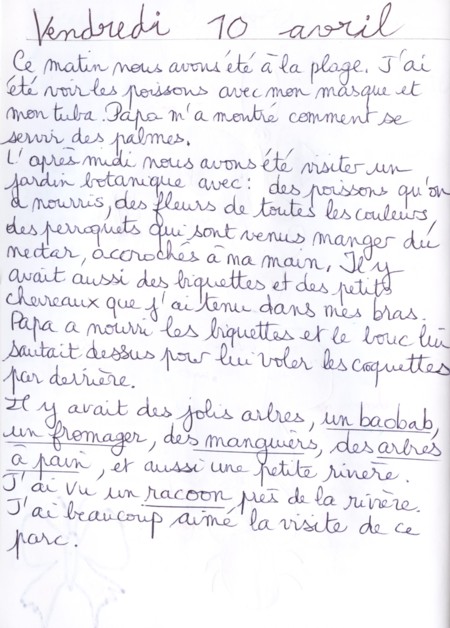 Vendredi 10 avril
Ce matin nous avons été à la plage. J'ai
été voir les poissons avec mon masque et
mon tuba. Papa m'a montré comment se
servir des palmes.
L'après midi nous avons été visiter un
jardin botanique avec : des poissons qu'on
a nourris, des fleurs de toutes les couleurs,
des perroquets qui sont venus manger du
nectar, accrochés à ma main. Il y
avait aussi des biquettes et des petits
chevreaux que j'ai tenu dans mes bras.
Papa a nourri les biquettes et le bouc lui
sautait dessus pour lui voler les coquettes
par derrière.
Il y avait des jolis arbres, un baobab,
un fromager, des manguiers, des arbres
à pain, et aussi une petite rivière.
J'ai vu un racoon près de la rivière.
J'ai beaucoup aimé la visite de ce
parc.